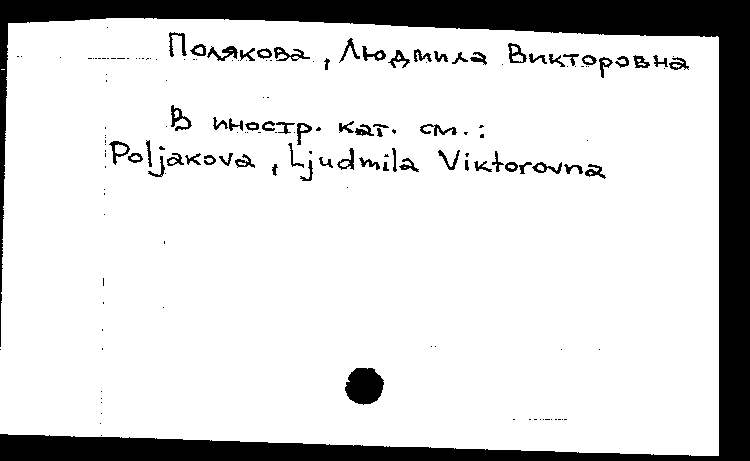 Полякова, Людмила Викторовна
В иностр. кат. см.:
Poljakova, Ljudmila Viktorovna